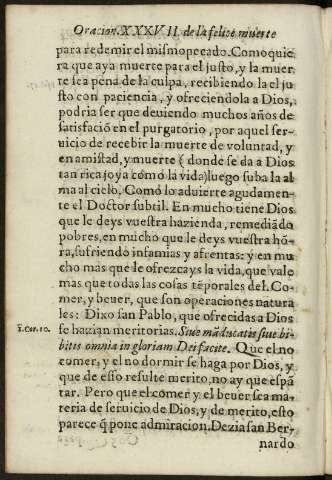 Oracion. XXXVII. de la felice muerte
para redemir el mismo pecado. Como quie
ra que aya muerte para el justo, y la muer
te sea pena de la culpa, recibiendo la el ju
sto con paciencia, y ofreciendola a Dios,
podria ser que deuiendo muchos años de
satisfació en el purgatorio, por aquel ser-
uicio de recebir la muerte de voluntad, y
en amistad, y muerte (donde se da a Dios
tan rica joya como la vida) luego suba la al
ma al cielo. Como lo aduierte agudamen-
te el Doctor subtil. En mucho tiene Dios
que le deys vuestra hazienda, remediãdo
pobres, en mucho que le deys vuestra hõ-
ra, sufriendo infamias y afrentas: y en mu
cho mas que le ofrezcays la vida, que vale
mas que todas las cosas tẽporales del. Co-
mer, y beuer, que son operaciones natura
les: Dixo san Pablo, que ofrecidas a Dios
1. Cor. 10. se hazian meritorias. Siue mãducatis siue bi-
bitis omnia in gloriam Dei facite. Que el no
comer, y el no dormir se haga por Dios, y
que de esso resulte merito, no ay que espã
tar. Pero que el comer y el beuer sea ma-
teria de seruicio de Dios, y de merito, esto
parece q̃ pone admiracion. Dezia san Ber-
nardo